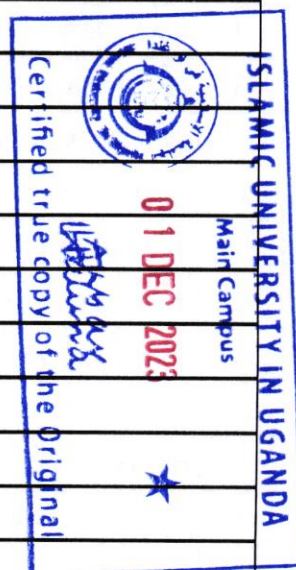 ISLAMIC UNIVERSITY IN UGANDA
Main Campus
01 DEC 2023
Certified true copy of the Original